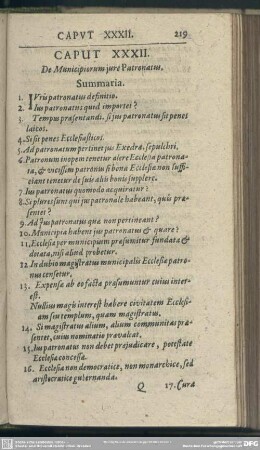 CAPVT XXXII. 219
CAPUT XXXII.
De Municipiorum jure Patronatus.
Summaria.
1. IVris patronatus definitio.
2. Ius patronatus quid importet?
3. Tempus praesentandi. si jus patronatus sit penes
laicos.
4. Si sit penes Ecclesiasticos.
5. Ad patronatum pertinet jus Exedrae, sepulchri.
6. Patronum inopem tenetur alere Ecclesia patrona-
ta, & vicissim patronus si bona Ecclesiae non suffi-
ciant tenetur de suis aliis bonis supplere.
7. Ius patronatus quomodo acquiratur?
8. Si plures sunt qui jus patronale habeant, quis prae-
sentet?
9. Ad jus patronatus quae non pertineant?
10. Municipia habent jus patronatus & quare?
11. Ecclesia per municipium praesumitur fundata &
dotata, nisi aliud probetur.
12. In dubio magistratus municipalis Ecclesiae patro-
nus censetur.
13. Expensae ab eo factae praesumuntur cuius inter-
est.
Nullius magis interest habere civitatem Ecclesi-
am seu templum, quam magistratus.
14. Si magistratus alium, alium communitas prae-
sentet, cuius nominatio praevaleat.
15. Ius patronatus non debet praejudicare, potestate
Ecclesiae concessa.
16. Ecclesia non democratice, non monarchice, sed
aristocratice gubernanda.
Q 17. Cura